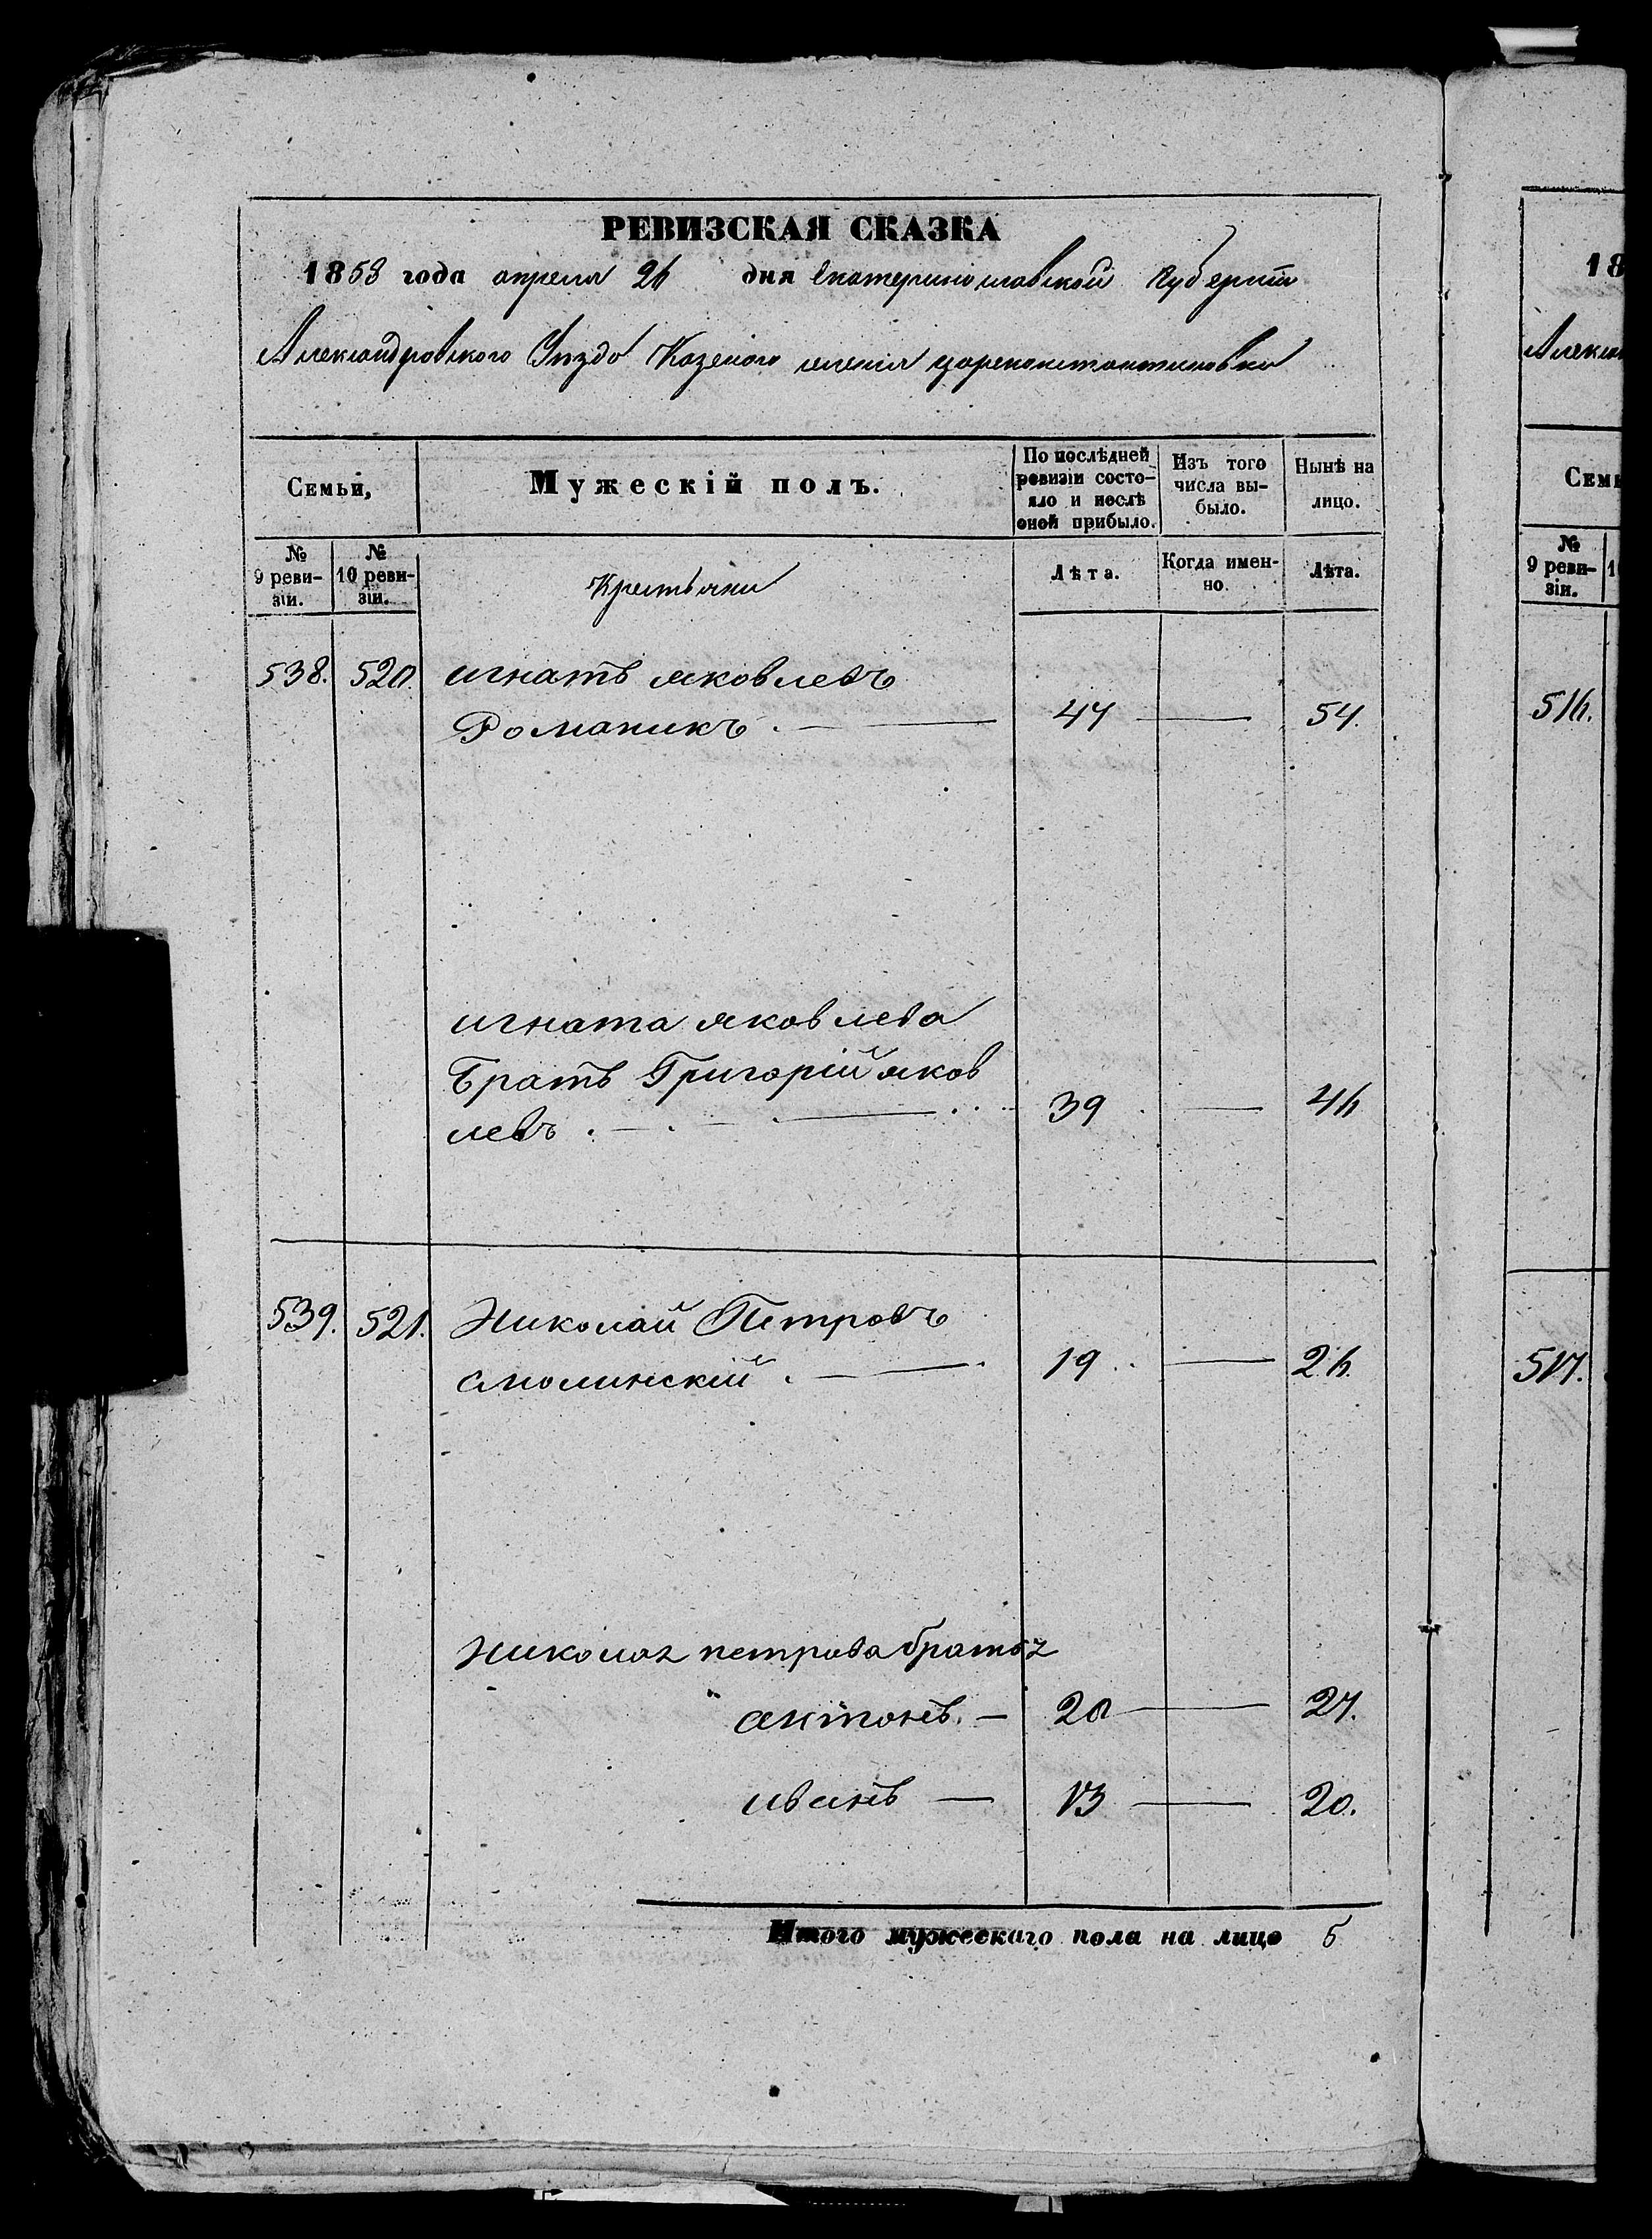 РЕВИЗСКАЯ СКАЗКА
1858 года апреля 26 дня Екатеринославской Губерніи
Александровского Уезда Казеного селенія цареконстантиновки
Семьи,
Мужескій полъ.
По послѣдней ревизіи состояло и послѣ оной прибыло.
Изъ того числа выбыло.
Нынѣ на лицо.
№ 9 ревизіи.
№ 10 ревизіи.
Крестьяни
Лѣта.
Когда именно.
Лѣта.
538. 520. игнатъ яковлевъ
Романикъ. — 47 — 54.
игната яковлева
братъ Григорій яков
левъ . — 39 — 46
539. 521. Николай Петровъ
смолинскій . — 19 — 26.
Николая петрова братья
антонъ. — 20 — 27.
иванъ — 13 — 20.
Итого мужескаго пола на лицо 5
18
Алексан
Семь
№ 9 ревизіи.
1
516.
517.